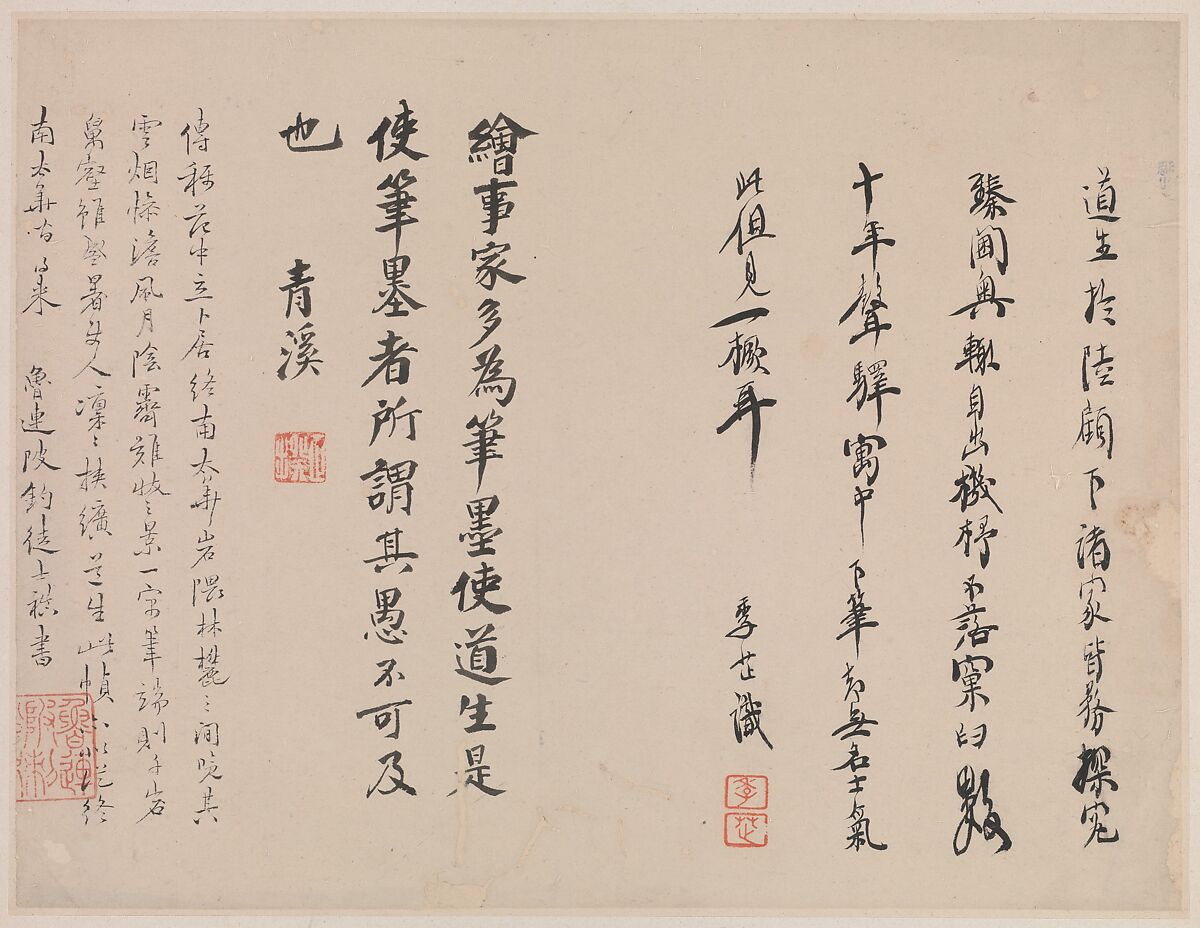 道生於陸顧下諸家皆務探究
臻閫奧轍自出機杼不落窠臼數
十年聲驛寓中下筆都無名士氣
此但見一橛耳
季芷識
季芷
繪事家多為筆墨使道生是
使筆墨者所謂其愚不可及
也 青溪
傳稱范中立卜居終南太華岩隈林麓之間覽其
雲烟慘澹風月陰霽難狀之景一寓筆端則千岩
萬壑雖盛暑使人凜凜挾纊道生此幀 終
南太華間 來 魯連陂釣徒士 書